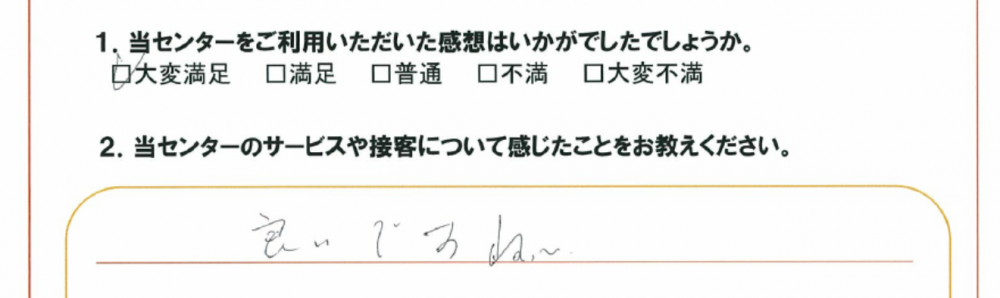 1. 当センターをご利用いただいた感想はいかがでしたでしょうか。
☑大変満足 □満足 □普通 □不満 □大変不満
2. 当センターのサービスや接客について感じたことをお教えください。
良いですね、〜